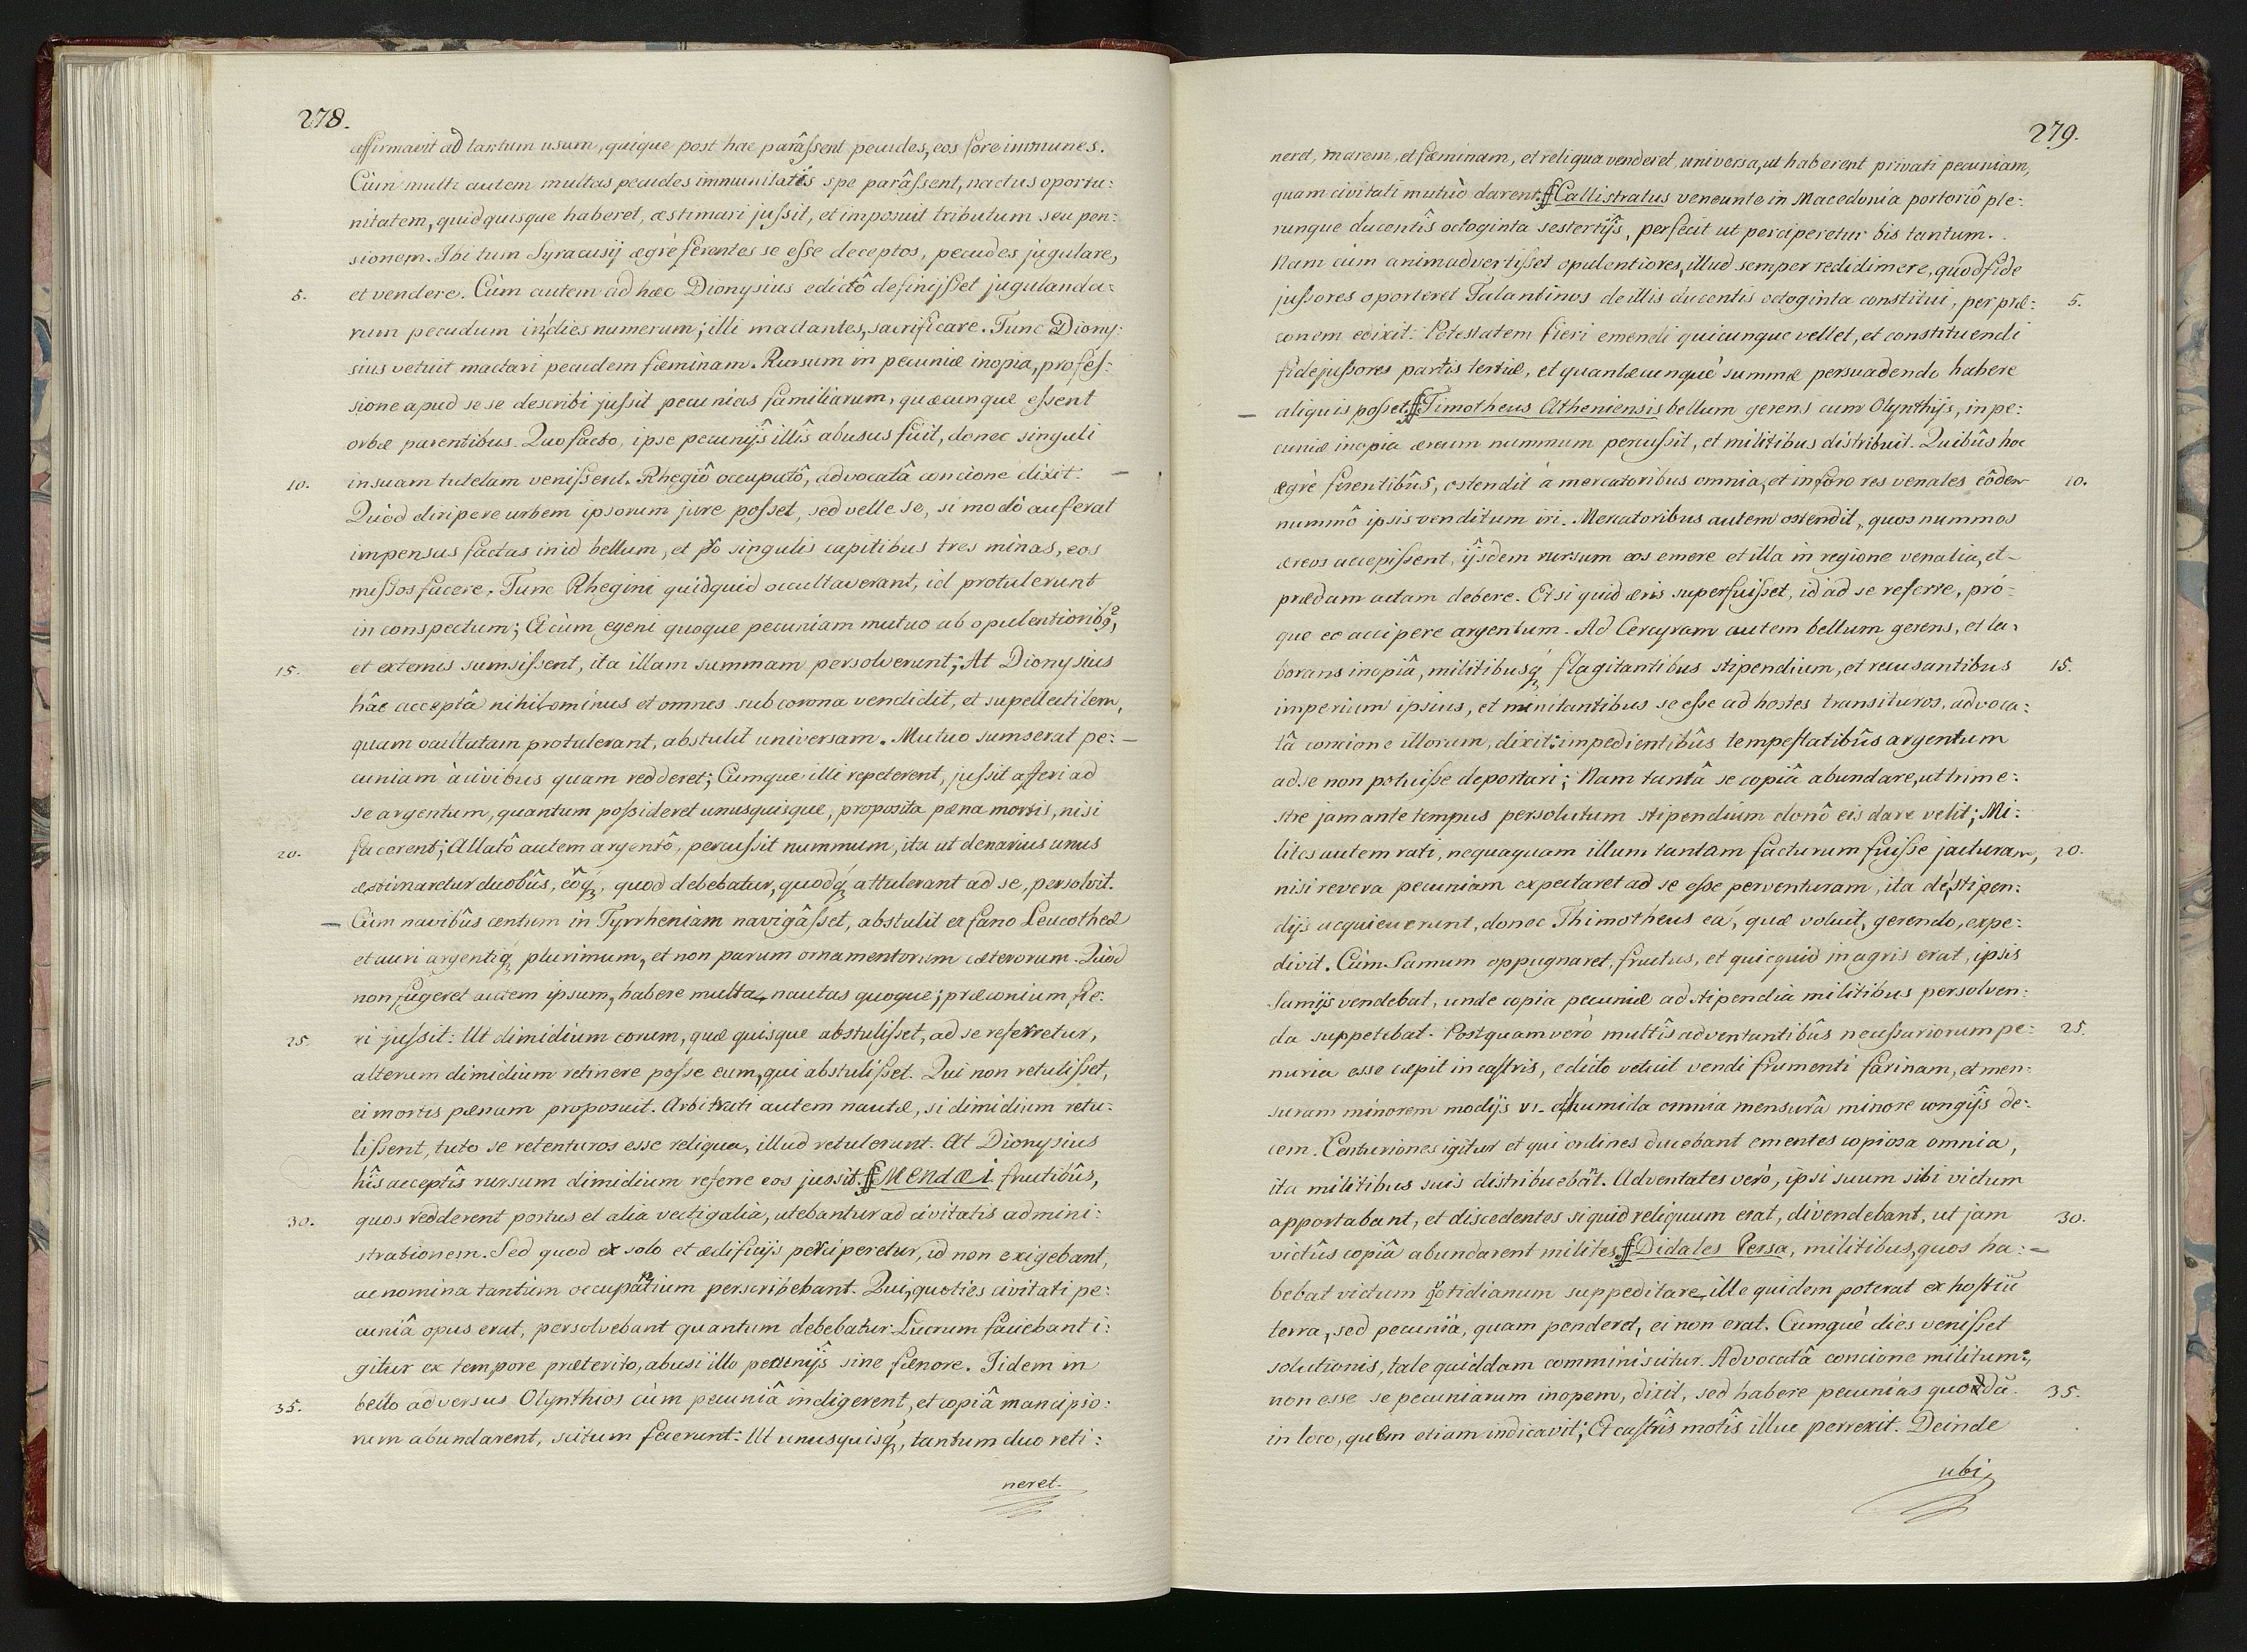 278.
affirmavit ad tantum usum, quique post hac parâſsent pecudes, eos fore immunes.
Cùm multi autem multas pecudes immunitatis spe parâſsent, nactus oportu:
nitatem, quid quisque haberet, æstimari juſsit, et imposuit tributum seu pen:
sionem. Ibi tum Syracusij ægrè ferentes se eſse deceptos, pecudes jugulare,
5. et vendere. Cùm autem ad hæc Dionysius edictô definijſset jugulanda:
rum pecudum in dies numerum; illi mactantes, sacrificare. Tunc Diony:
sius vetuit mactari pecudem fœminam. Rursum in pecuniæ inopia, profeſ:
sione apud se se describi juſsit pecunias familiarum, quæcunque eſsent
orbæ parentibus. Quo facto, ipse pecunijs illîs abusus fuit, donec singuli
10. in suam tutelam veniſsent. Rhegiô occupatô, advocatâ concione dixit: —
Quòd diripere urbem ipsorum jure poſset, sed velle se, si modò auferat
impensas factas in id bellum, et pro singulis capitibus tres minas, eos
miſsos facere. Tunc Rhegini quidquid occultaverant, id protulerunt
in conspectum; Ac cùm egeni quoque pecuniam mutuo ab opulentioribꝰ,
15. et externis sumsiſsent, ita illam summam persolverunt; At Dionysius
hâc acceptâ nihilominus et omnes sub corona vendidit, et supellectilem,
quam occultatam protulerant, abstulit universam. Mutuo sumserat pe: —
cuniam à civibus quam redderet; Cumque illi repeterent, juſsit afferi ad
se argentum, quantum poſsideret unusquisque, proposita pœna mortis, nisi
20. facerent; Allatô autem argentô, percuſsit nummum, ita ut denarius unus
æstimaretur duobûs, eôq́, quod debebatur, quodq́ attulerant ad se, persolvit.
— Cùm navibûs centum in Tyrrheniam navigâſset, abstulit ex fano Leucotheæ
et auri argentiq́ plurimum, et non parum ornamentorum cæterorum. Quòd
non fugeret autem ipsum, habere multa nautas quoque; præconium fie:
25. ri juſsit: Ut dimidium eorum, quæ quisque abstuliſset, ad se referretur,
alterum dimidium retinere poſse eum, qui abstuliſset. Qui non retuliſset,
ei mortis pœnam proposuit. Arbitrati autem nautæ, si dimidium retu:
liſsent, tuto se retenturos esse reliqua, illud retulerunt. At Dionysius
hîs acceptîs rursum dimidium referre eos jussit. ʄʄ Mendæi fructibûs,
30. quos redderent portus et alia vectigalia, utebantur ad civitatis admini:
strationem. Sed quod ex solo et ædificijs perciperetur, id non exigebant,
ac nomina tantùm occupantium perscribebant. Qui, quoties civitati pe:
cuniâ opus erat, persolvebant quantum debebatur. Lucrum faciebant i:
gitur ex tempore præterito, abusi illo pecunijs sine fœnore. Iidem in
35. bello adversus Olynthios cùm pecuniâ indigerent, et copiâ mancipio:
rum abundarent, scitum fecerunt: Ut unusquisq́, tantum duo reti:
neret.
279.
neret, marem, et fœminam, et reliqua venderet universa, ut haberent privati pecuniam,
quam civitati mutuò darent. ʄʄ Callistratus veneunte in Macedonia portoriô ple:
runque ducentîs octoginta sestertijs, perfecit ut perciperetur bis tantum.
Nam cùm animadvertiſset opulentiores, illud semper redidimere, quòd fide
juſsores oporteret Talantinos de illis ducentis octoginta constitui, per præ: 5.
conem edixit: Potestatem fieri emendi quicunque vellet, et constituendi
fidejuſsores partis tertiæ, et quantæcunquè summæ persuadendo habere
— aliquis poſset. ʄʄ Timotheus Atheniensis bellum gerens cum Olynthijs, in pe:
cuniæ inopia æreum nummum percuſsit, et militibus distribuit. Quibûs hoc
ægrè ferentibûs, ostendit à mercatoribus omnia, et in foro res venales eôdem 10.
nummô ipsis venditum iri. Mercatoribus autem ostendit, quos nummos
æreos accepiſsent, ijsdem rursum eos emere et illa in regione venalia, et-
prædam actam debere. Et si quid æris superfuiſset, id ad se referre, pró-
que eo accipere argentum. Ad Cercyram autem bellum gerens, et la:
borans inopiâ, militibusq́ flagitantibus stipendium, et recusantibus 15.
imperium ipsius, et minitantibus se eſse ad hostes transituros, advoca:
tâ concione illorum, dixit: impedientibûs tempeſtatibûs argentum
ad se non potuiſse deportari; Nam tantâ se copiâ abundare, ut trime:
stre jam ante tempus persolutum stipendium donô eis dare velit; Mi:
lites autem rati, nequaquam illum tantam facturum fuiſse jacturam, 20.
nisi revera pecuniam expectaret ad se eſse perventuram, ita de stipen:
dijs acquieverunt, donec Thimotheus ea, quæ voluit, gerendo, expe:
divit. Cùm Samum oppugnaret, fructus, et quicquid in agris erat, ipsis
Samijs vendebat, unde copia pecuniæ ad stipendia militibus persolven:
da suppetebat. Postquam verò multîs adventantibûs neceſsariorum pe: 25.
nuria esse cœpit in caſtris, edicto vetuit vendi frumenti farinam, et men:
suram minorem modijs vi. et humida omnia mensurâ minore congijs de:
cem. Centuriones igitur et qui ordines ducebant ementes copiosa omnia,
ita militibus suis distribuebāt. Adventates verò, ipsi suum sibi victum
apportabant, et discedentes si quid reliquum erat, divendebant, ut jam 30.
victûs copiâ abundarent milites. ʄʄ Didales Persa, militibus, quos ha: —
bebat victum qͦtidianum suppeditare, ille quidem poterat ex hostiū
terra, sed pecunia, quam penderet, ei non erat. Cumquè dies veniſset
solutionis, tale quiddam comminiscitur. Advocatâ concione militum:,
non esse se pecuniarum inopem, dixit, sed habere pecunias quodā. 35.
in loco, quem etiam indicavit; Et caſtrîs motîs illuc perrexit. Deinde
ubi